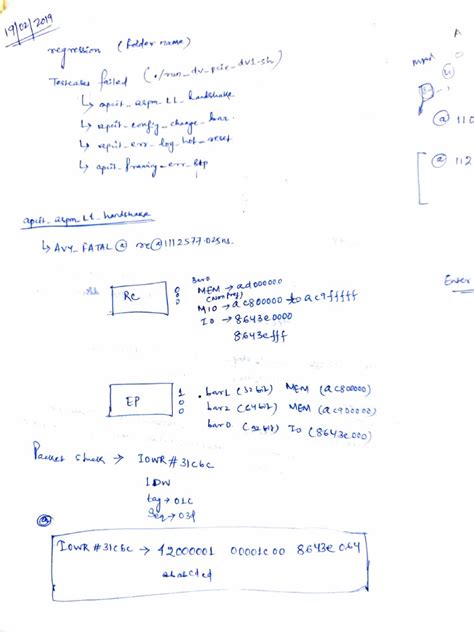 19/02/2019
regression (folder name)
Testcases failed (./run_dv_pcie_dv1.sh)
↳ apcit_aspm_L1_handshake
↳ apcit_config_change_bar
↳ apcit_err_log_hot_reset
↳ apcit_framing_err_stp
apcit_aspm_L1_handshake
↳ AVY_FATAL @ rc@1112577.025ns.
RC
0
0
0
Bar0
MEM → ad000000
MIO → ac800000 to ac9fffff
IO → 8643e0000
8643efff
EP
1
0
0
bar1 (32bit) MEM (ac800000)
bar2 (64bit) MEM (ac900000)
bar0 (32bit) IO (8643e000)
Packet → IOWR#31cbc
1DW
tag → 01C
Seq → 03f
IOWR#31cbc → 42000001 00001c00 8643e064
abcdcd
A
0
a 110
a 112
Enter